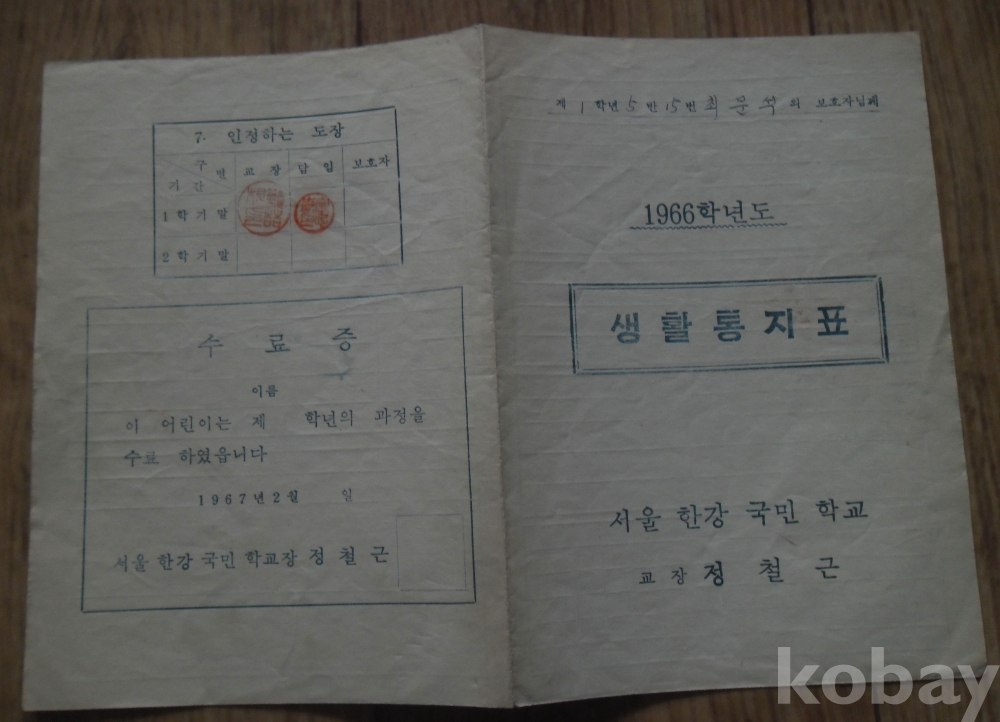 7. 인정하는 도장
구별 기간 교장 담임 보호자
1학기말
2학기말
수료증
이름
이 어린이는 제 학년의 과정을
수료 하였읍니다
1967년2월 일
서울 한강 국민 학교장 정철근
제 1 학년 5 반 15번 최문석의 보호자님께
1966학년도
생활통지표
서울 한강 국민 학교
교장 정철근
kobay